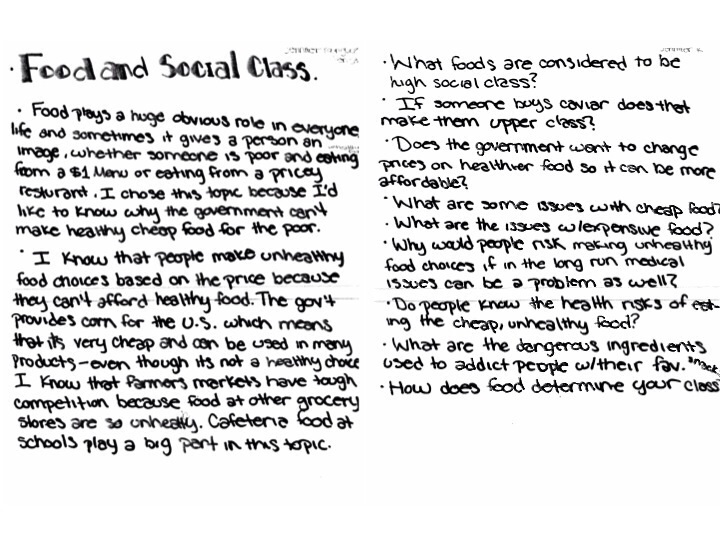 · Food and Social Class.
· Food plays a huge obvious role in everyone
life and sometimes it gives a person an
image, whether someone is poor and eating
from a $1 Menu or eating from a pricey
resturant. I chose this topic because I'd
like to know why the government can't
make healthy cheap food for the poor.
· I know that people make unhealthy
food choices based on the price because
they can't afford healthy food. The gov't
provides corn for the U.S. which means
that its very cheap and can be used in many
products-even though its not a healthy choice
I know that farmers markets have tough
competition because food at other grocery
stores are so unhealty. Cafeteria food at
schools play a big part in this topic.
· What foods are considered to be
high social class?
· If someone buys caviar does that
make them upper class?
· Does the government want to change
prices on healthier food so it can be more
affordable?
· What are some issues with cheap food?
· What are the issues w/expensive food?
· Why would people risk making unhealthy
food choices if in the long run medical
issues can be a problem as well?
· Do people know the health risks of eat-
ing the cheap, unhealthy food?
· What are the dangerous ingredients
used to addict people w/their fav. snack
· How does food determine your class